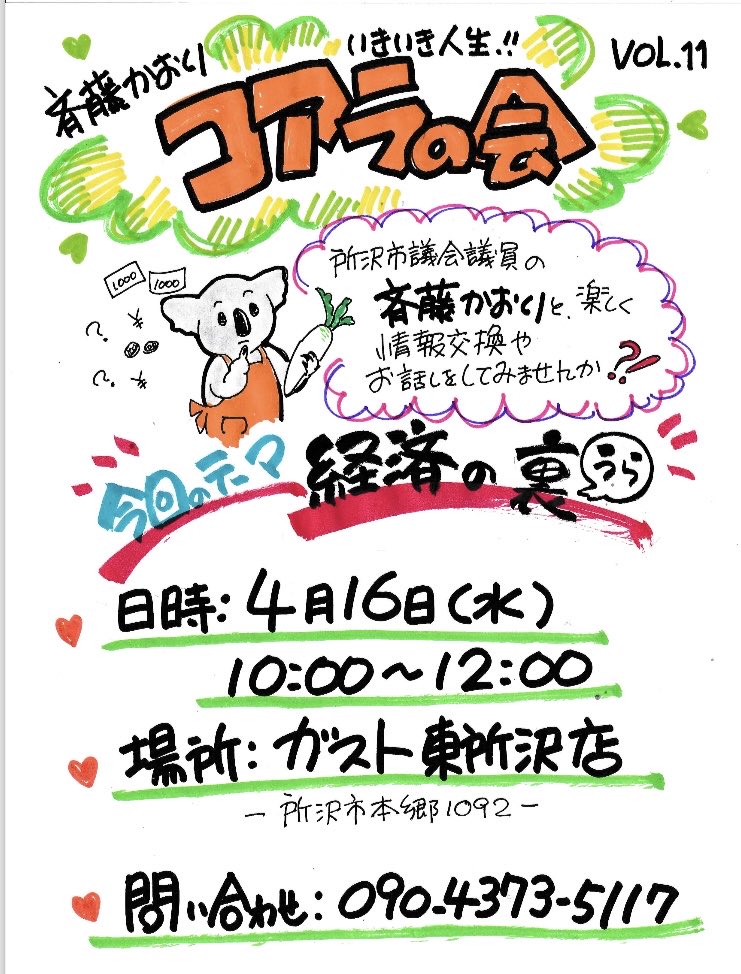 斉藤かおり
いきいき人生!!
VOL.11
コアラの会
所沢市議会議員の
斉藤かおりと、楽しく
情報交換や
お話しをしてみませんか?!
1000
1000
?
¥
?
¥
今回のテーマ
経済の裏
うら
日時:4月16日(水)
10:00〜12:00
場所:ガスト東所沢店
-所沢市本郷1092-
問い合わせ:090-4373-5117